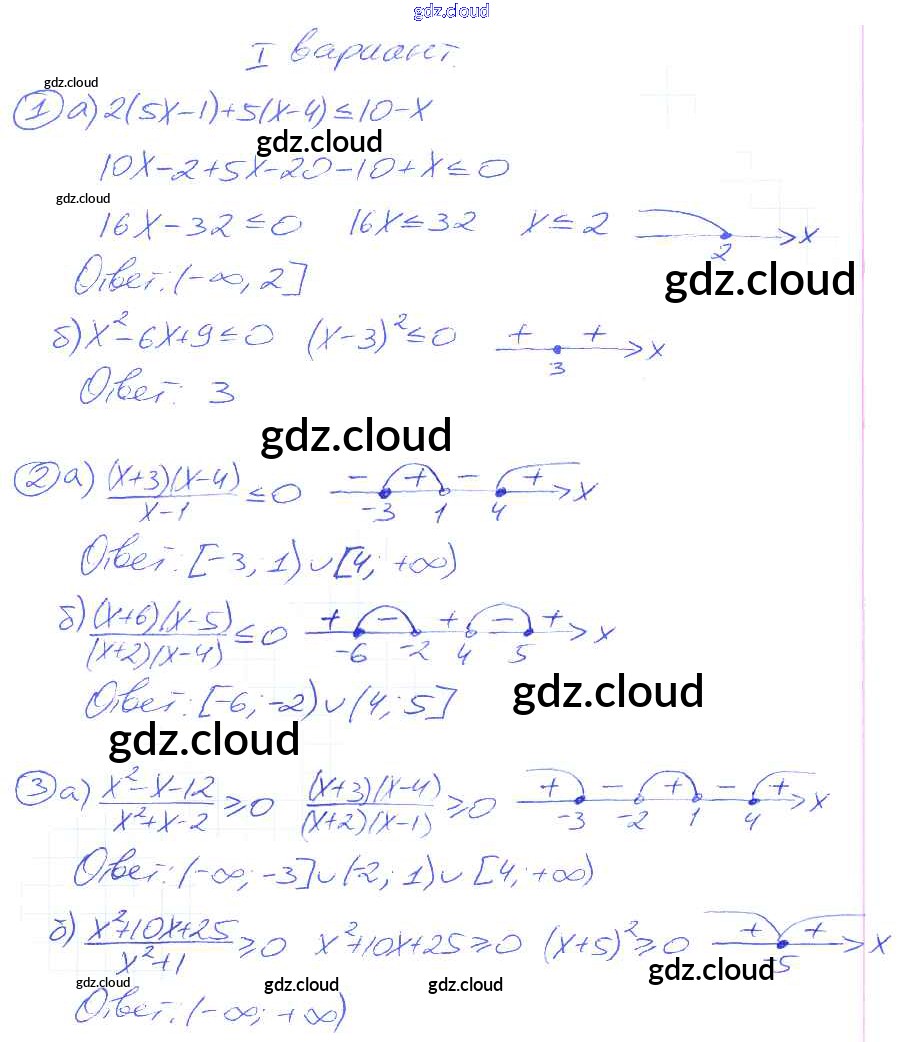 gdz.cloud
I вариант.
gdz.cloud
① а) 2(5x-1)+5(x-4)≤10-x
gdz.cloud
10x-2+5x-20-10+x≤0
gdz.cloud
16x-32≤0 16x≤32 x≤2 2 x
Ответ: (-∞, 2] gdz.cloud
б) x²-6x+9≤0 (x-3)²≤0 + + 3 x
Ответ: 3
gdz.cloud
② а) (x+3)(x-4)/(x-1) ≤0 - + - + -3 1 4 x
Ответ: [-3; 1)∪[4; +∞)
б) (x+6)(x-5)/((x+2)(x-4)) ≤0 + - + - + -6 -2 4 5 x
Ответ: [-6; -2)∪(4; 5] gdz.cloud
gdz.cloud
③ а) (x²-x-12)/(x²+x-2) ≥0 (x+3)(x-4)/((x+2)(x-1)) ≥0 + - + - + -3 -2 1 4 x
Ответ: (-∞; -3]∪(-2; 1)∪[4; +∞)
б) (x²+10x+25)/(x²+1) ≥0 x²+10x+25≥0 (x+5)²≥0 + + -5 x
gdz.cloud gdz.cloud gdz.cloud gdz.cloud
Ответ: (-∞; +∞)